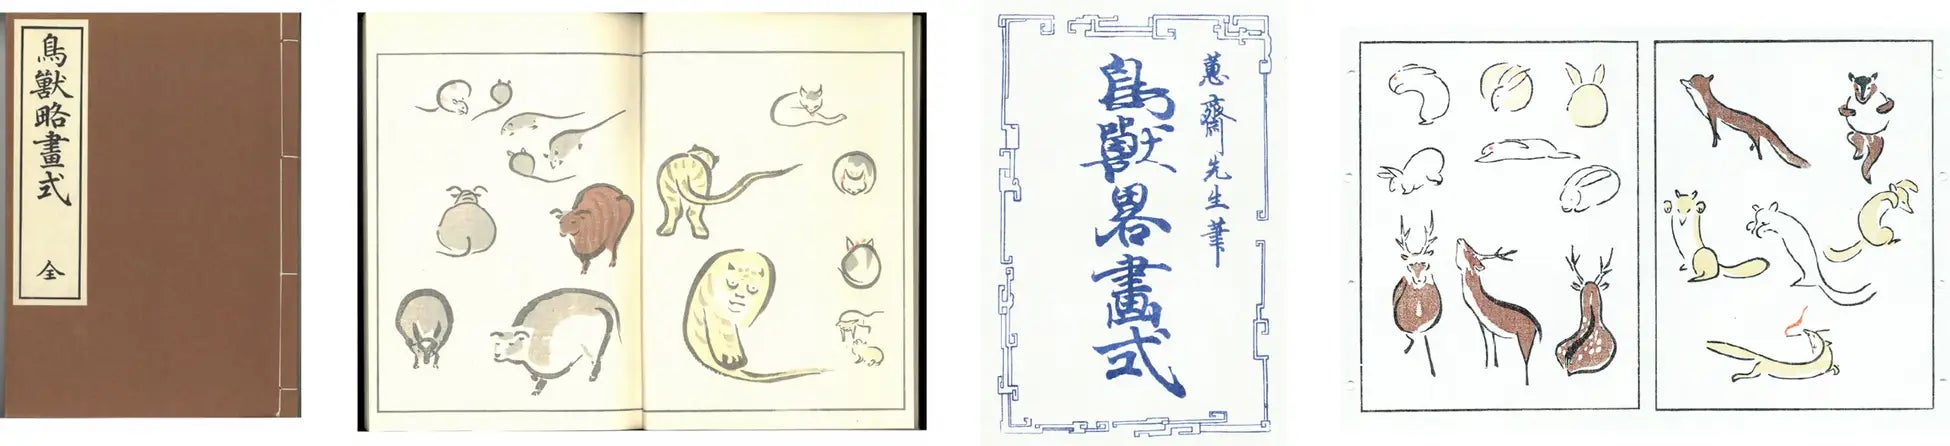 鳥獣略畫式
全
蕙齋先生筆
鳥獣畧畫式